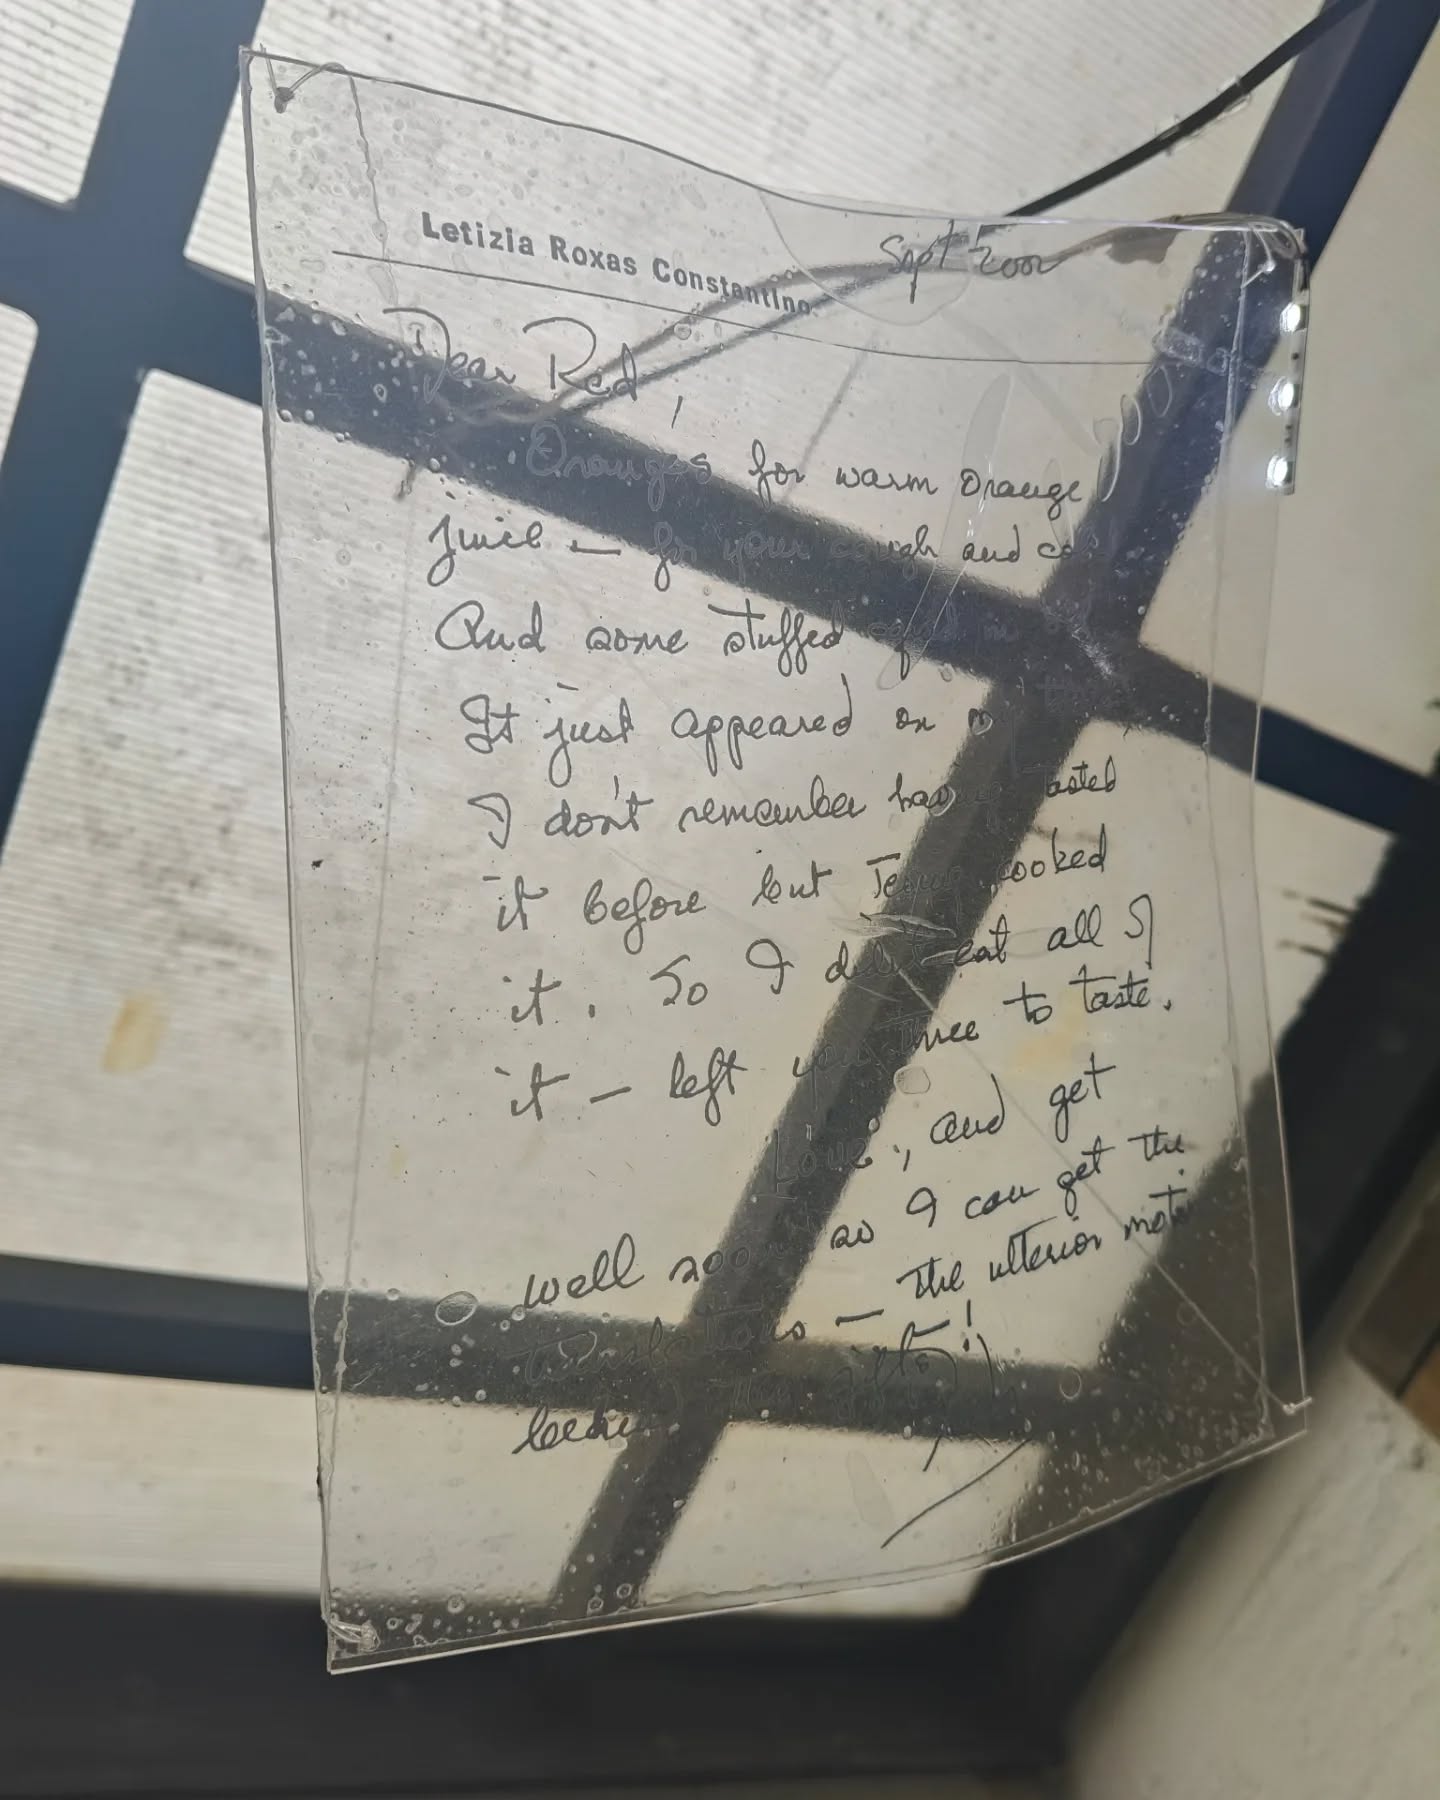 Letizia Roxas Constantino
Sept 2002
Dear Red,
Oranges for warm orange
juice — for your cough and
And some stuffed squid in
It just appeared on my
I don't remember having tasted
it before but cooked
it. So I didn't eat all of
it — left you three to taste.
Love, and get
well soon so I can get the
translations — the ulterior motive
behind the gifts!